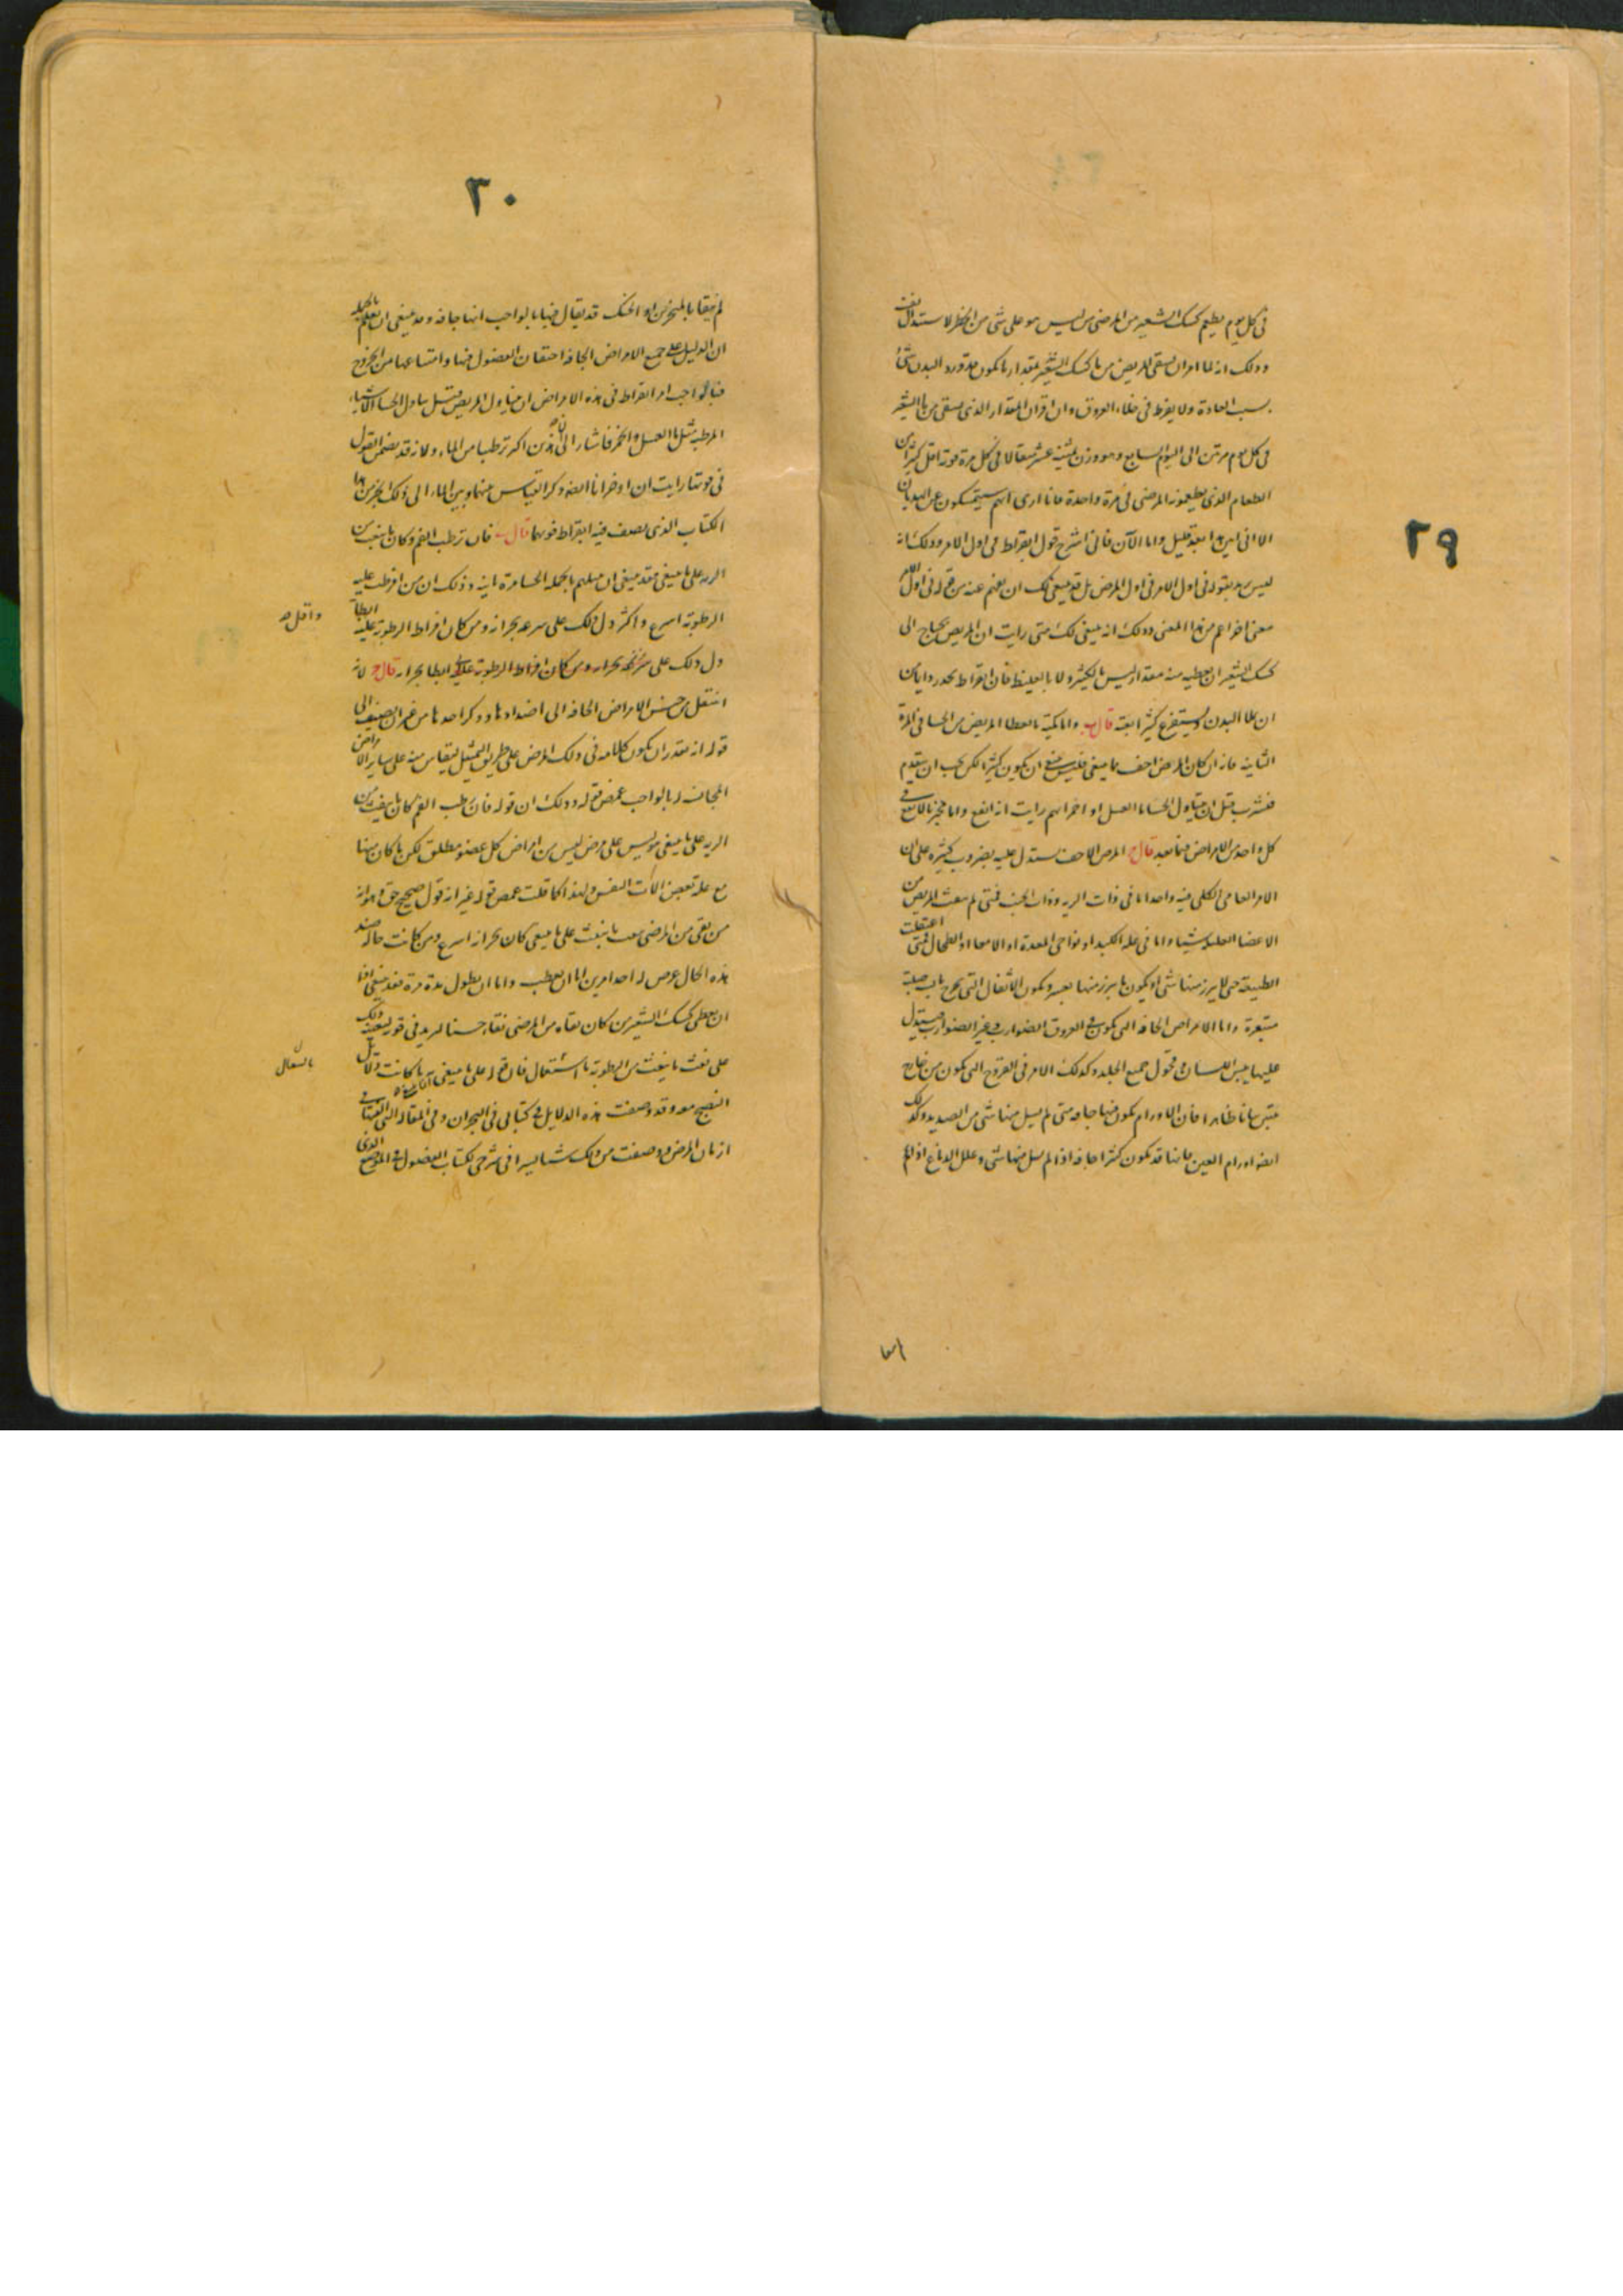 ٢٩
في كل يوم يطعم كشك الشعير من المرضى من ليس هو على شي من الخطر لاستدلال
وذلك انه لما امر ان يسقى المريض من ماء كشك الشعير بمقدار ما يكون البدن شي
بسبب العادة ولا يفرط في خلاء العروق وان اقران المقدار الذي يسقى من ماء الشعير
في كل يوم مرتين الى اليوم السابع وهو وزن عشر مثقالا في كل مرة اقل كثيرا من
الطعام الذي يطعمونه المرضى في مرة واحدة فانا ارى انهم سيتمسكون عن الهذيان
الا اني ابين هذا بعد قليل واما الآن فاني اشرح قول ابقراط في اول الامر وذلك انه
ليس يريد بقوله في اول الامر في اول المرض بل قد ينبغي لك ان تفهم عنه من قوله في اول الامر
معنى اخر اعم من هذا المعنى وذلك انه ينبغي لك متى رايت ان المريض يحتاج الى
كشك الشعير ان تعطيه منه مقدارا ليس بالكثير ولا بالغليظ فان ابقراط يحذر دايما من
ان يملا البدن ويستفرغ كثيرا بغتة قال ب واما كمية ما يعطا المريض من الحسا في المرة
الثانية فانه ان كان المرض اجف مما ينبغي فليس ينبغي ان يكون كثيرا لكن يجب ان يتقدم
فيشرب قبل ان يتناول الحسا ماء العسل او الخمر ايهم رايت انه انفع واما مخبر بالانفع في
كل واحد من الامراض فيما بعد قال ج المرض الاجف يستدل عليه بضروب كثيرة على ان
الامر العامي الكلي فيه واحد اما في ذات الرية وذات الجنب فمتى لم ينفث المريض من
الاعضا العليلة شيئا واما في علة الكبد او نواحي المعدة او الامعا او الطحال فمتى اعتقلت
الطبيعة حتى لا يبرز منها شي او يكون ما يبرز منها بعسر وتكون الاثفال التي تخرج يابسة صلبة
متبعرة واما الامراض الجافة التي تكون في العروق الضوارب وغير الضوارب فيستدل
عليها بيبس اللسان وقحول جميع الجلد وكذلك الامر في القروح التي تكون من خارج
بيانا ظاهرا فان الاورام تكون فيها جافة متى لم يسيل منها شي من الصديد وكذلك
ايضا اورام العين فانها قد تكون كثيرا جافة اذا لم يسل منها شي وعلل الدماغ اذا لم
٣٠
لم ينقا بالمنخرين او الحنك قد يقال فيها بالواجب انها جافة وقد ينبغي ان تعلم بالجملة
ان الدليل على جميع الامراض الجافة احتقان الفضول فيها وامتناعها من الخروج
فبالواجب امر ابقراط في هذه الامراض ان يتناول المريض قبل تناول الحسا الاشياء
المرطبة مثل ماء العسل والخمر فاشار الى ان هذين اكثر ترطيبا من الماء ولانه قد يضمن القول
في قوتها رايت ان اوخر انا ايضا ذكر القياس بينهما وبين الماء الى ذلك الجزء من هذا
الكتاب الذي يصف فيه ابقراط قوتهما قال ب فان ترطب الفم وكان ما ينبعث من
الرية على ما ينبغي فقد ينبغي ان بالجملة الحسا وذلك ان من افرطت عليه
الرطوبة اسرع واكثر دل ذلك على سرعة بحرانه ومن كان افراط الرطوبة عليه ابطا
واقل صح
دل ذلك على بحرانه ومن كان افراط الرطوبة عليه ابطا بحرانه قال ج لانه
انتقل من جنس الامراض الجافة الى اضدادها وذكر احدها من غير ان يضيف الى
قوله انه يقدر ان يكون كلامه في ذلك المرض على طريق التمثيل ليقاس منه على ساير الامراض
المجانسة له بالواجب غمض قوله وذلك ان قوله فان رطب الفم وكان ما ينفث من
الرية على ما ينبغي وليس على مرض ليس من امراض كل عضو مطلق لكن ما كان منها
مع علة بعض الات النفس ولهذا كما قلت غمض قوله غير انه قول صحيح حق وهو انه
من نقى من المرضى بنفث ما ينفث على ما ينبغي كان بحرانه اسرع ومن كانت حاله ضد
هذه الحال عرض له احد امرين اما ان يعطب واما ان يطول مدة مرضه فقد ينبغي اذا
ان يعطى كشك الشعير من كان نقاه من المرضى نقاء حسنا ليزيد في قوته ليعينه ذلك
على نفث ما ينفث من الرطوبة بالسعال فان قوله على ما ينبغي ما كانت دلايل
بالسعال
النضج معه وقد وصفت هذه الدلايل في كتابي في البحران وفي المقالة التي الفتها في
ازمان المرض ووصفت من ذلك شيئا يسيرا في شرحي لكتاب الفصول في الموضع الذي